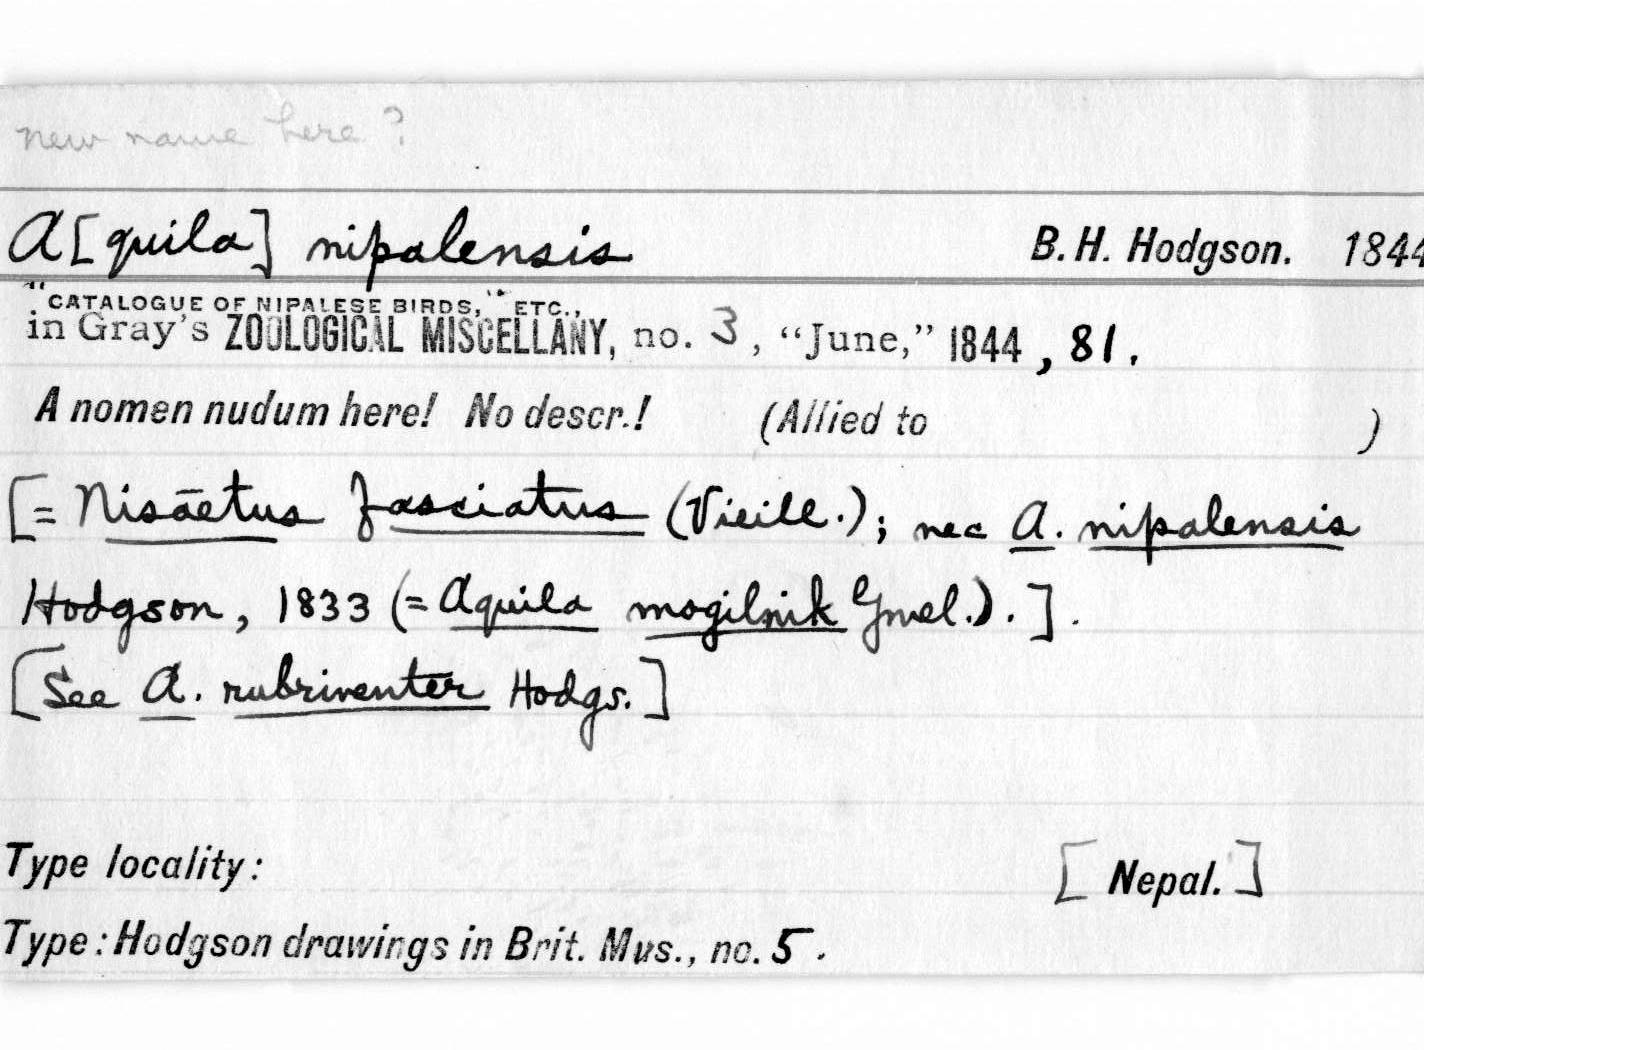 new name here?
A[quila] nipalensis B. H. Hodgson. 1844
"CATALOGUE OF NIPALESE BIRDS," ETC.,
in Gray's ZOOLOGICAL MISCELLANY, no. 3, "June," 1844, 81.
A nomen nudum here! No descr.! (Allied to )
[= Nisäetus fasciatus (Vieill.); nec A. nipalensis
Hodgson, 1833 (= Aquila mogilnik Gmel.).].
[See A. rubriventer Hodgs.]
Type locality: [Nepal.]
Type: Hodgson drawings in Brit. Mus., no. 5.